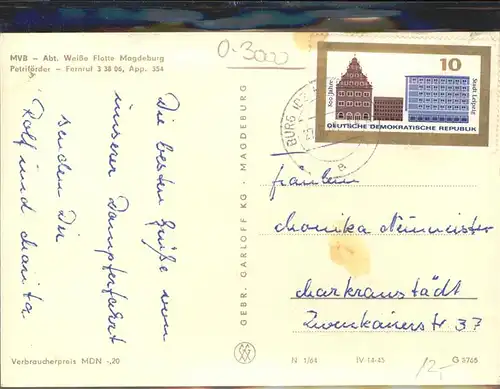 MVB – Abt. Weiße Flotte Magdeburg
Petriförder – Fernruf 3 38 06, App. 354
0-3000
Die besten Grüße von
unserer Dampferfahrt
senden Dir
Rolf und Marita
GEBR. GARLOFF KG · MAGDEBURG
BURG
800 Jahre
10
Stadt Leipzig
DEUTSCHE DEMOKRATISCHE REPUBLIK
Fräulein
Monika Neumeister
Markranstädt
Zwenkauerstr 37
Verbraucherpreis MDN -,20
N 1/64 IV-14-45 G 3765
12,-